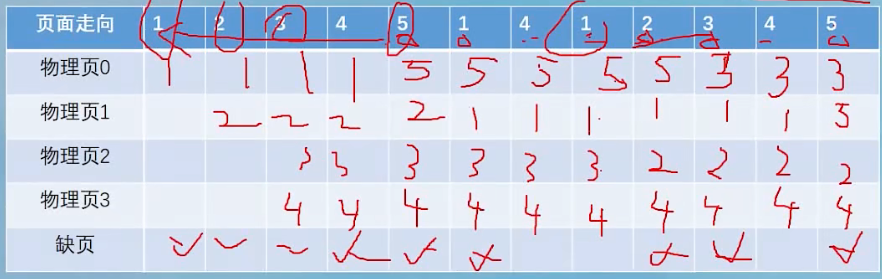 页面走向 1 2 3 4 5 1 4 1 2 3 4 5
物理页0 1 1 1 1 5 5 5 5 5 3 3 3
物理页1 2 2 2 2 1 1 1 1 1 1 5
物理页2 3 3 3 3 3 3 2 2 2 2
物理页3 4 4 4 4 4 4 4 4 4 4
缺页